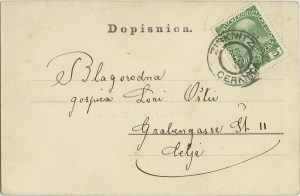 Dopisnica.
ZIRKNITZ
Blagorodna
gospica Lori Oštir
Grabengasse St 11
Celje